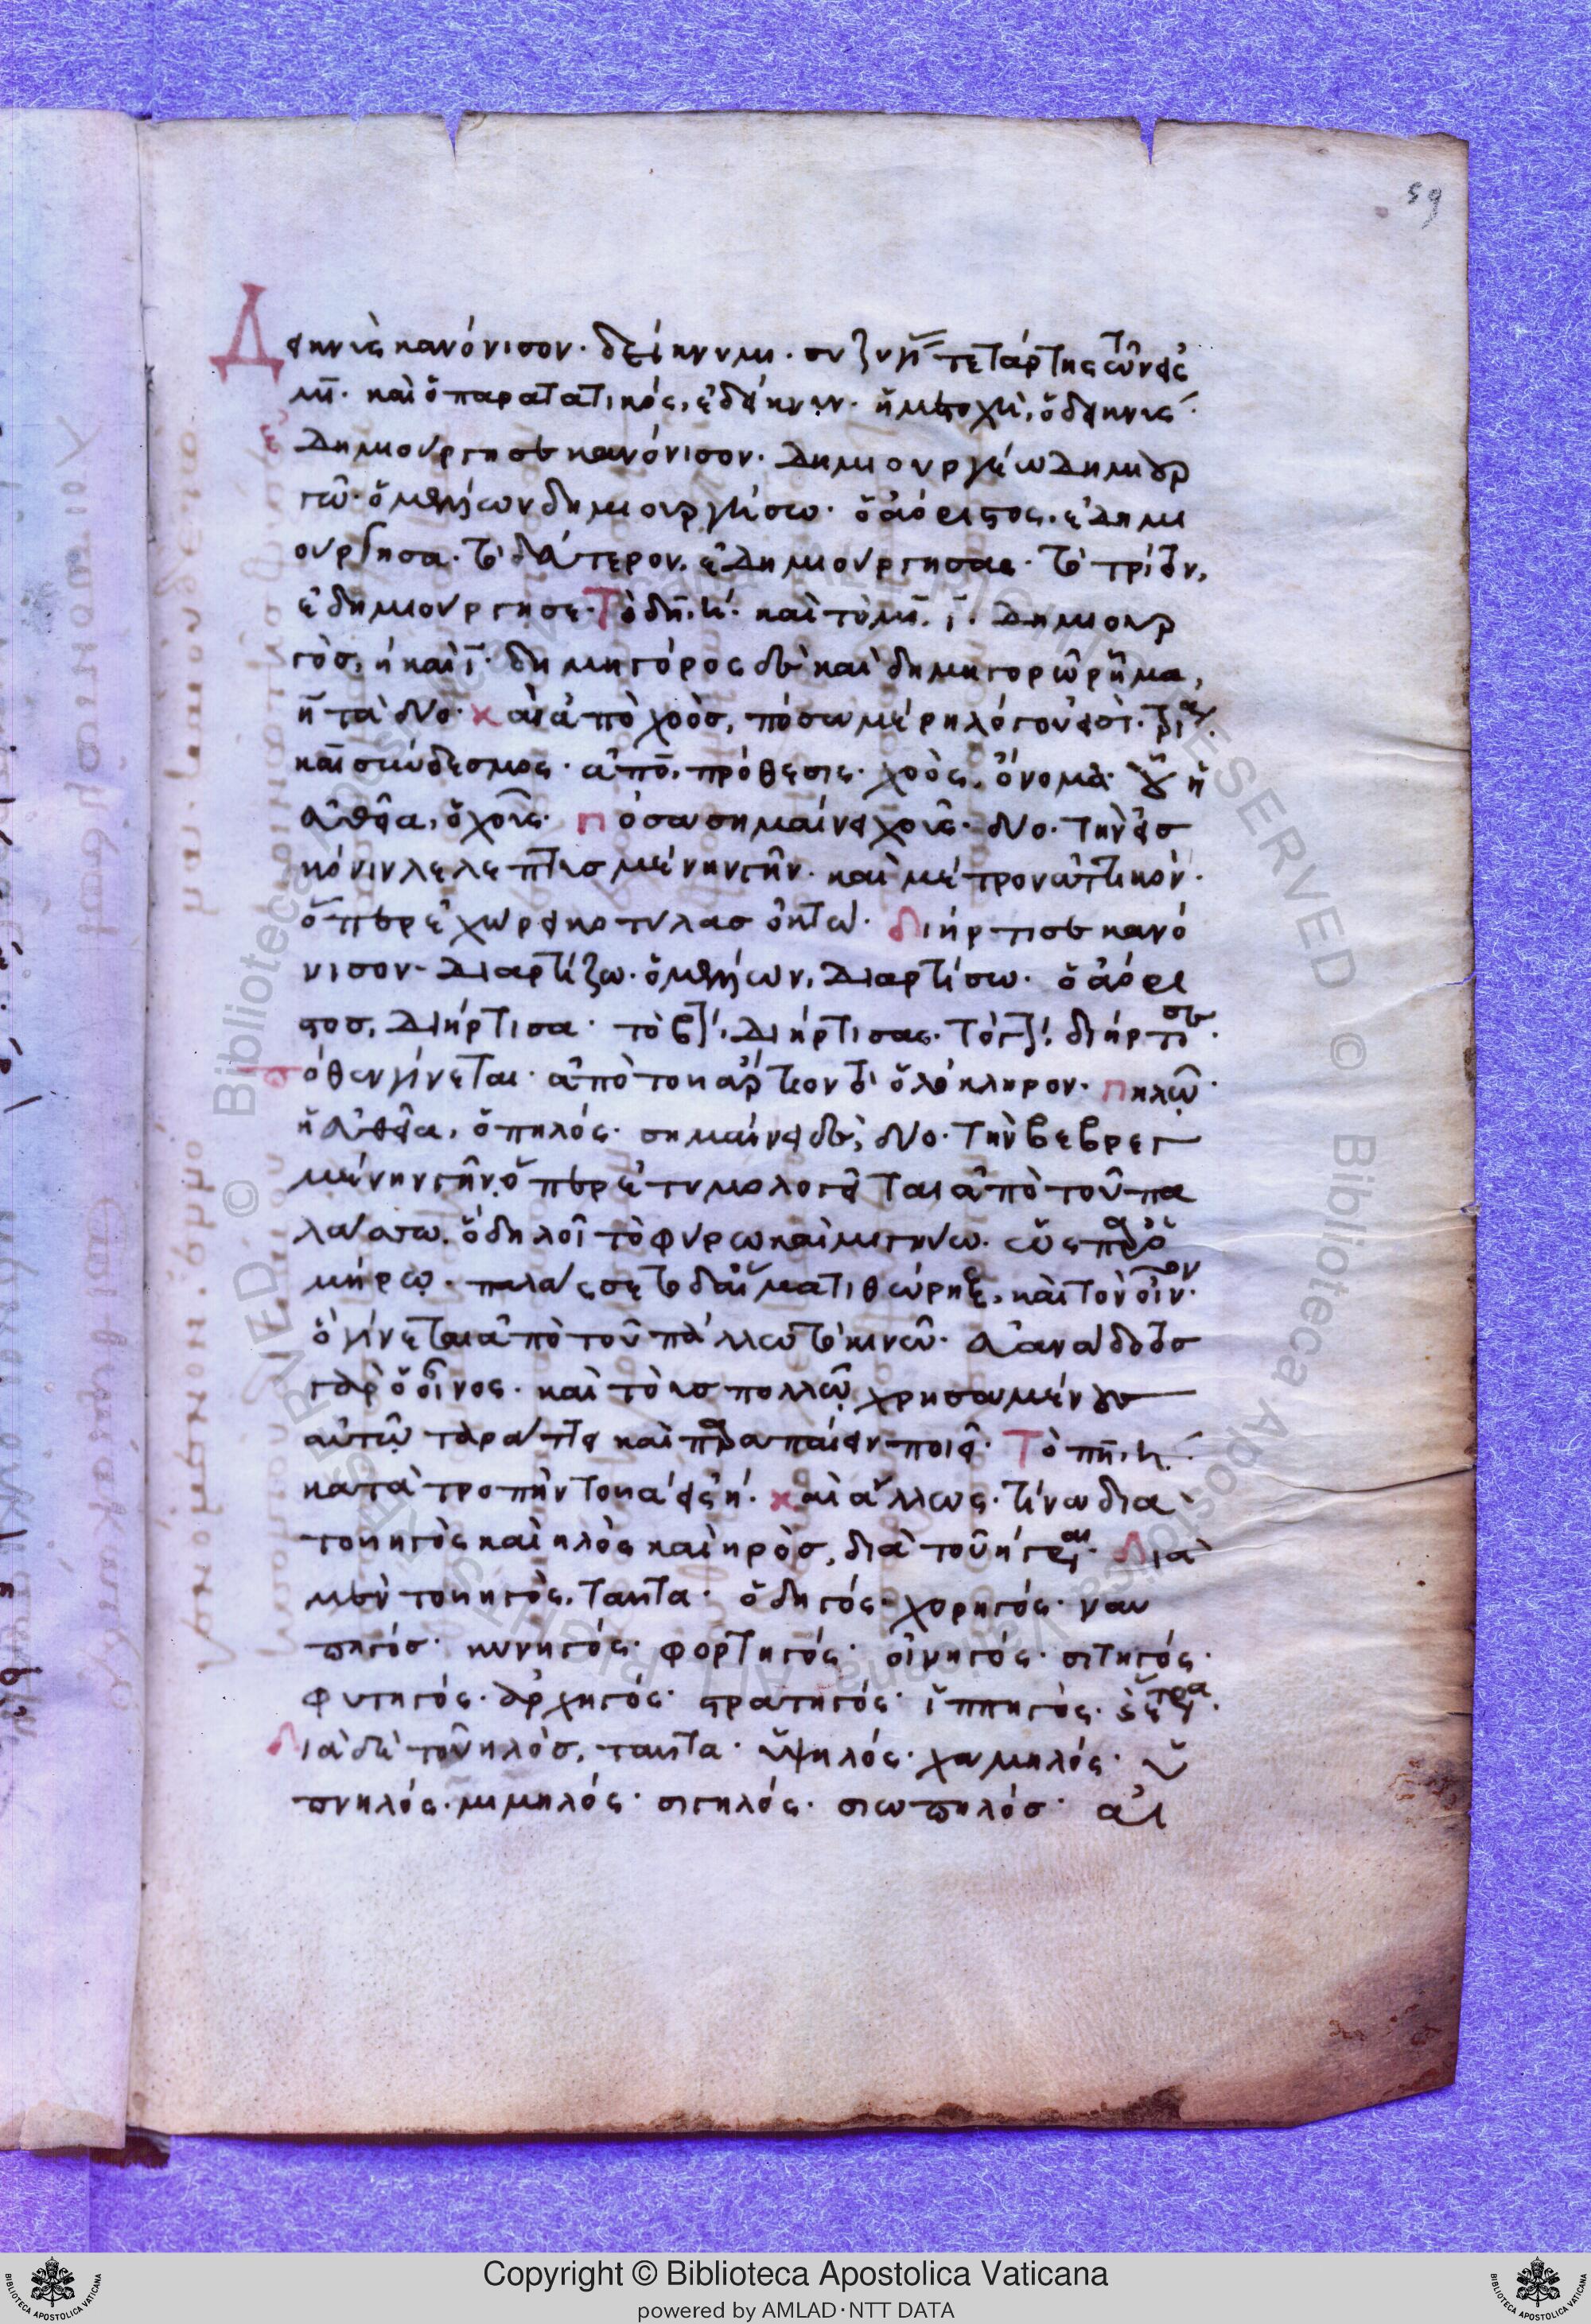 59
Δεικνὺς κανόνισον· δείκνυμι· συζυγι τετάρτης τῶν εἰς
μι· καὶ ὁ παρατατικός, ἐδείκνυν· ἡ μετοχὴ, ὁ δεικνύς·
ἐδημιούργησε κανόνισον· δημιουργέω δημιουρ
γῶ· ὁ μέλλων δημιουργήσω· ὁ ἀόριστος, ἐδημι
ούργησα· τὸ δεύτερον, ἐδημιούργησας· τὸ τρίτον,
ἐδημιούργησε· Τὸ δη, η· καὶ τὸ μι, ι· δημιουρ
γὸς, η καὶ ι· δημηγόρος δὲ καὶ δημηγορῶ ρῆμα,
η τὰ δύο· καὶ ἀπὸ χοὸς, πόσα μέρη λόγου εἰσί· τρία·
καὶ σύνδεσμος· ἀπὸ, πρόθεσις· χοὸς, ὄνομα· οὗ ἡ
εὐθεῖα, ὁ χοῦς· πόσα σημαίνει χοῦς· δύο· τὴν εἰς
κόνιν λελεπτυσμένην γῆν· καὶ μέτρον
ὅπερ ἐχώρει κοτύλας ὀκτώ· διήρτισε κανό
νισον· διαρτίζω· ὁ μέλλων, διαρτίσω· ὁ ἀόρι
στος, διήρτισα· τὸ β, διήρτισας· τὸ γ, διήρτισε·
πόθεν γίνεται· ἀπὸ τοῦ ἄρτιον τὸ ὁλόκληρον· πηλῷ·
ἡ εὐθεῖα, ὁ πηλός· σημαίνει δὲ, δύο· τὴν βεβρεγ
μένην γῆν, ὅπερ ἐτυμολογεῖται ἀπὸ τοῦ πα
λάσσω, ὃ δηλοῖ τὸ φύρω καὶ μιγνύω· ὡς παρ' ὁ
μήρῳ· παλάσσετο δ' αἵματι θώρηξ, καὶ τὸν οἶνον·
ὃ γίνεται ἀπὸ τοῦ πάλλω τὸ κινῶ· εὐανάδοτος
γὰρ ὁ οἶνος· καὶ τοὺς πολλῷ χρησαμένους
αὐτῷ ταράττει καὶ παραπαίειν ποιεῖ· Τὸ πη, η·
κατὰ τροπὴν τοῦ α εἰς η· καὶ ἄλλως· τίνα διὰ
τοῦ ηγὸς καὶ ηλὸς καὶ ηρὸς, διὰ τοῦ η γράφεται· Διὰ
μὲν τοῦ ηγὸς, ταῦτα· ὁδηγός· χορηγός· ναυ
πηγός· κυνηγός· φορτηγός· οἰνηγός· σιτηγός·
φυτηγός· ἀρχηγός· στρατηγός· ἱππηγός· ἕτερα·
Διὰ δὲ τοῦ ηλὸς, ταῦτα· ὑψηλός· χαμηλός· ὑ
πνηλός· μιμηλός· σιγηλός· σιωπηλός· αἰ
Copyright © Biblioteca Apostolica Vaticana
powered by AMLAD·NTT DATA